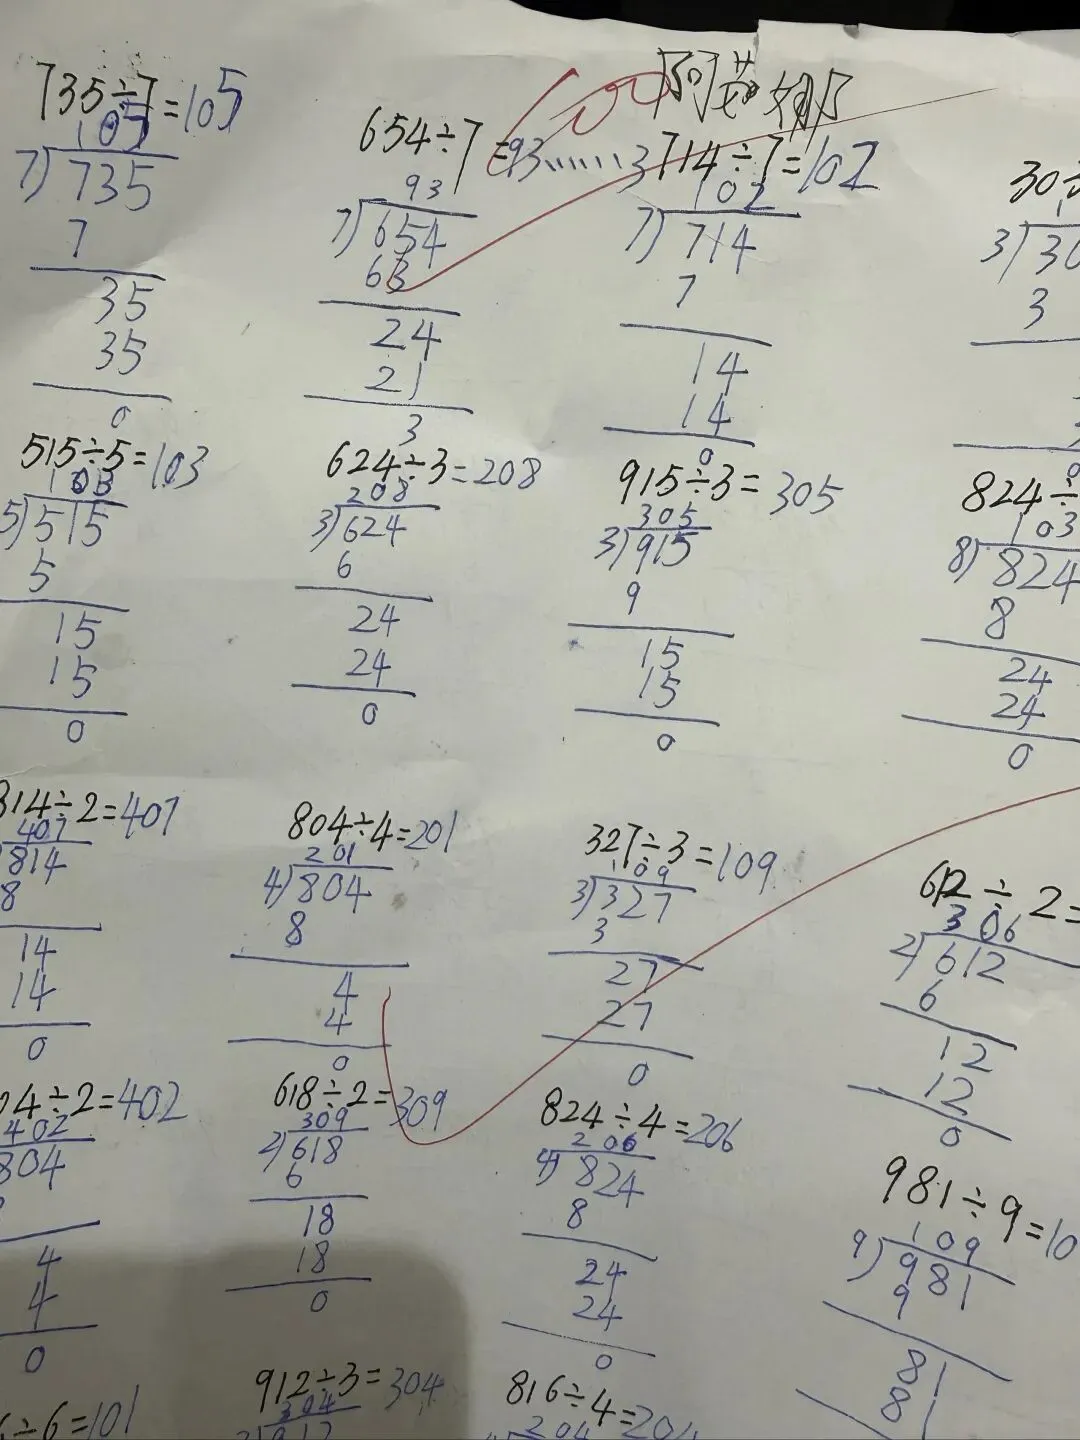 阿英娜
735÷7=105
105
7)735
7
35
35
0
654÷7=93……3
93
7)654
63
24
21
3
714÷7=102
102
7)714
7
14
14
0
30÷
1
3)30
3
515÷5=103
103
5)515
5
15
15
0
624÷3=208
208
3)624
6
24
24
0
915÷3=305
305
3)915
9
15
15
0
824÷
103
8)824
8
24
24
0
814÷2=407
407
814
8
14
14
0
804÷4=201
201
4)804
8
4
4
0
327÷3=109
109
3)327
3
27
27
0
612÷2=
306
2)612
6
12
12
0
04÷2=402
402
804
4
4
0
618÷2=309
309
2)618
6
18
18
0
824÷4=206
206
4)824
8
24
24
0
981÷9=10
109
9)981
9
81
81
÷6=101
912÷3=304
304
912
816÷4=204
204